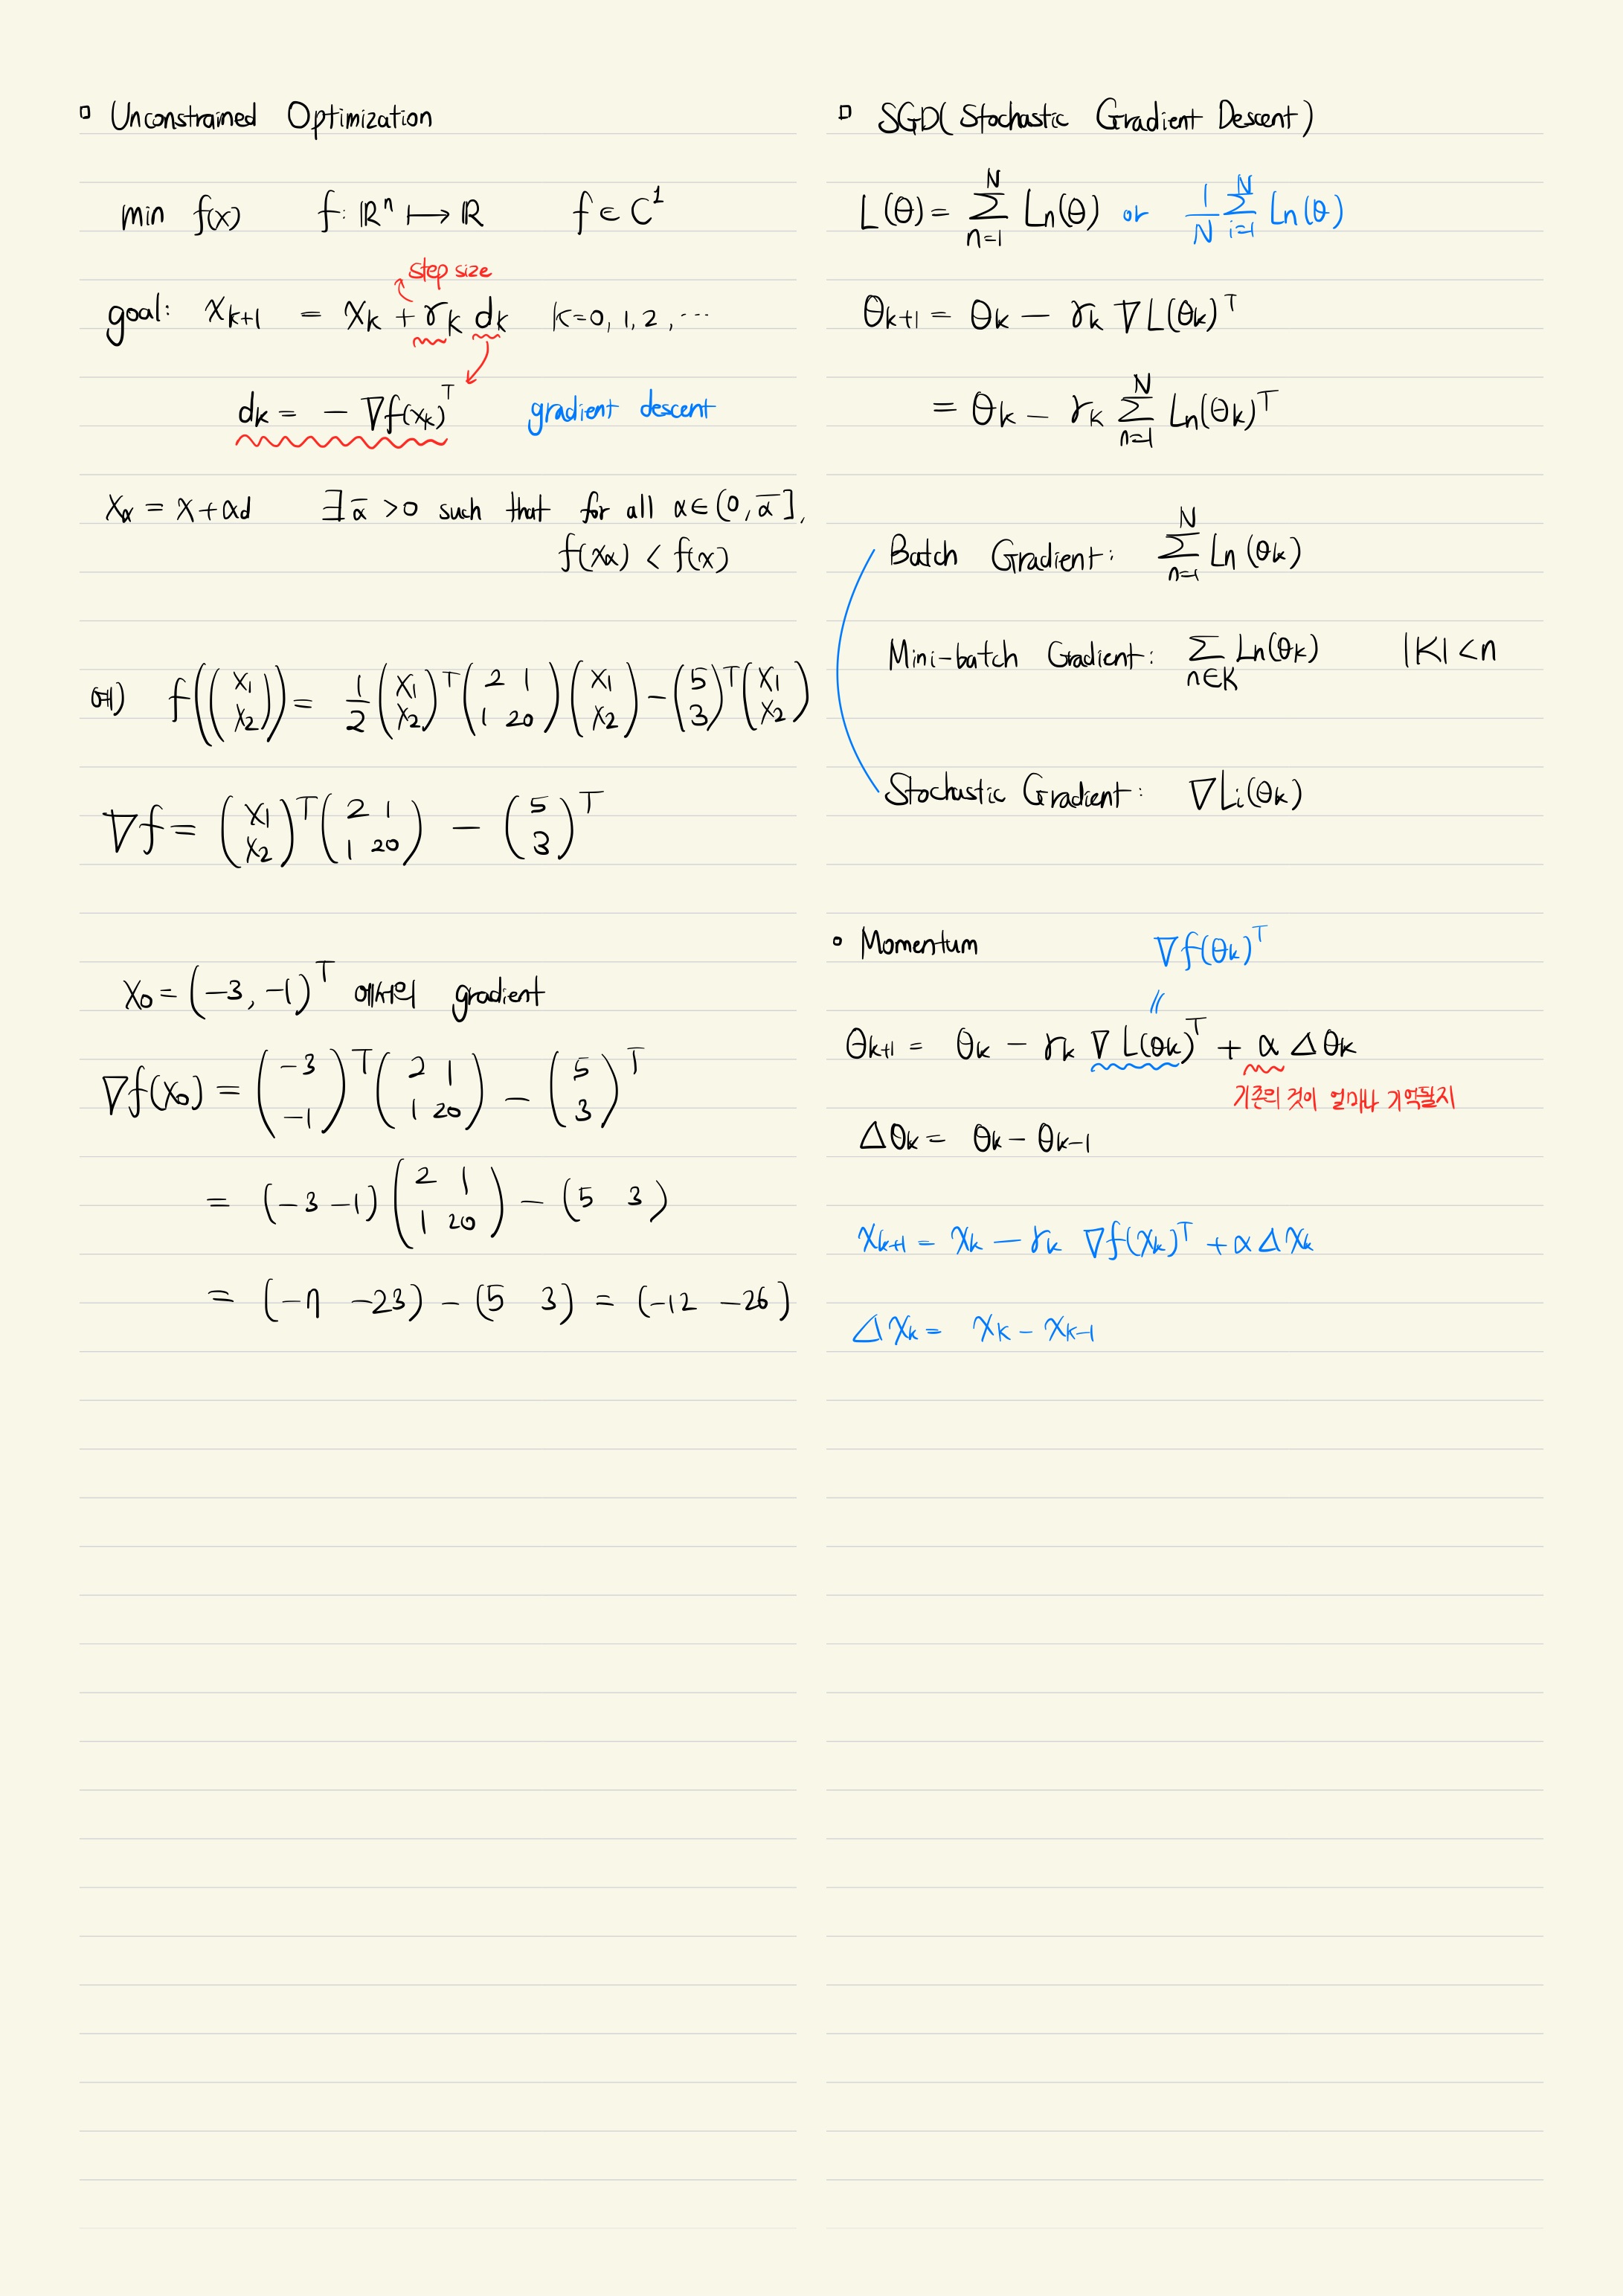 ▫ Unconstrained Optimization
min f(x) f: ℝⁿ ↦ ℝ f ∈ C¹
step size
goal: x_{k+1} = x_k + γ_k d_k k=0, 1, 2, ⋯
d_k = - ∇f(x_k)^T gradient descent
x_α = x + αd ∃ ᾱ > 0 such that for all α ∈ (0, ᾱ],
f(x_α) < f(x)
예) f((x₁ x₂)) = 1/2 (x₁ x₂)^T (2 1 1 20) (x₁ x₂) - (5 3)^T (x₁ x₂)
∇f = (x₁ x₂)^T (2 1 1 20) - (5 3)^T
x₀ = (-3, -1)^T 에서의 gradient
∇f(x₀) = (-3 -1)^T (2 1 1 20) - (5 3)^T
= (-3 -1) (2 1 1 20) - (5 3)
= (-7 -23) - (5 3) = (-12 -26)
▫ SGD(Stochastic Gradient Descent)
L(θ) = Σ_{n=1}^{N} Ln(θ) or 1/N Σ_{i=1}^{N} Ln(θ)
θ_{k+1} = θ_k - γ_k ∇L(θ_k)^T
= θ_k - γ_k Σ_{n=1}^{N} Ln(θ_k)^T
Batch Gradient: Σ_{n=1}^{N} Ln(θ_k)
Mini-batch Gradient: Σ_{n∈K} Ln(θ_k) |K| < n
Stochastic Gradient: ∇Li(θ_k)
∘ Momentum ∇f(θ_k)^T
//
θ_{k+1} = θ_k - γ_k ∇L(θ_k)^T + α Δθ_k
기존의 것이 얼마나 기억될지
Δθ_k = θ_k - θ_{k-1}
x_{k+1} = x_k - γ_k ∇f(x_k)^T + αΔx_k
Δx_k = x_k - x_{k-1}